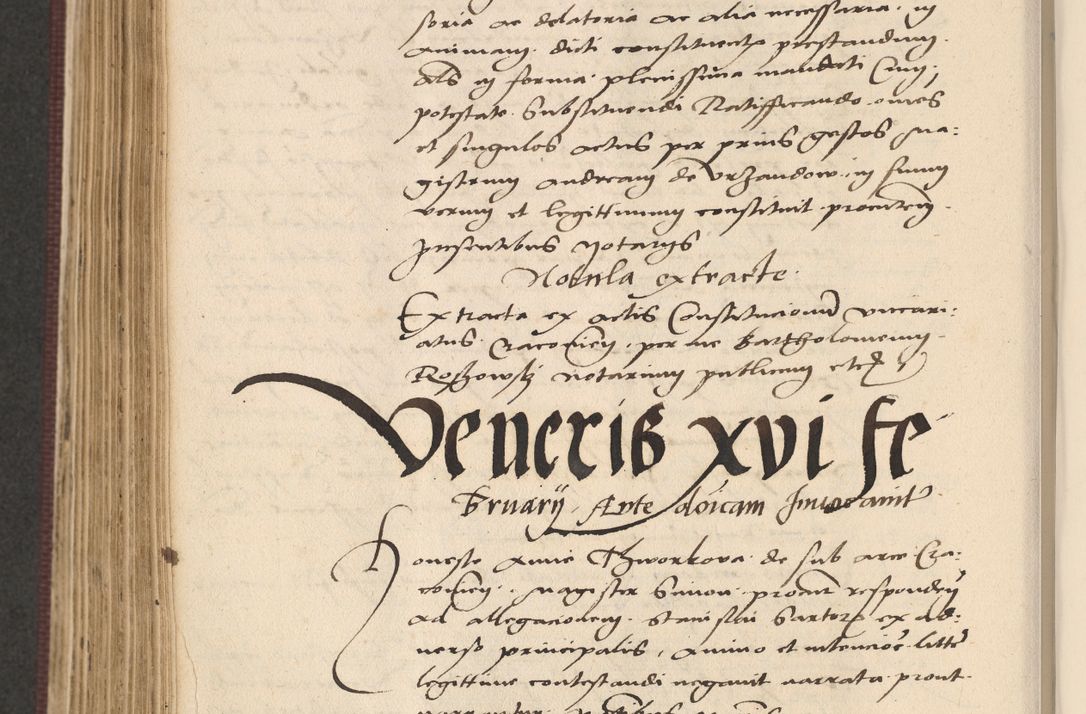 soria ac delatoria ac alia necessaria in
animam dicti constituent prestandum
als in forma plenissima mandati Cum
potestate Substituendi Ratifficando omes
et singulos actus per prius gestos ma:
gistrum andream de Vrzandow in suum
verum et legittimum constituit procutem
presentibus notariis
Notula extracte
Extracta ex actis Constitucionum vicari:
atus Cracovien per me Bartholomeum
Roszowskj notarium publicum etc
Veneris xvi fe
bruarij Ante dominicam Invocavit
Honeste Anne Thworkova de sub arce Cra:
covien magister Simon procur respondens
ad allegacionem Stanislai Sartor ex ad:
verso principalis animo et intencioe litte
legittime contestandi negavit narrata prout